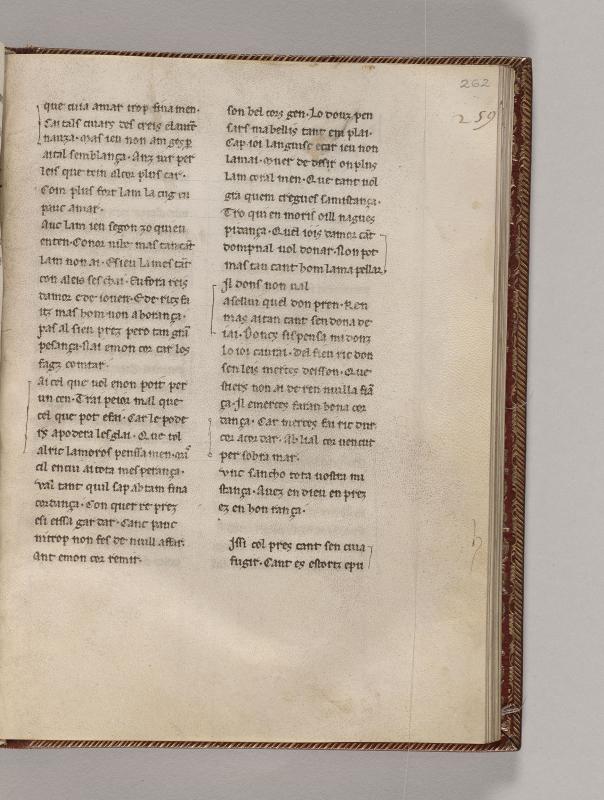 262
259
que cuia amar trop fina men.
Cai tals cuiars
nanza. Mas ieu non am
aital semblança. Anz uir per
leis que tein alcor plus car.
Com plus fort lam la cug en
pauc amar.
Anc lam ieu segon zo quieu
enten. Conor nule mas tan cant
lam non ai. Esieu
con aleis ses chai. En fora reis
damor e de iouen. E de
itz mas hom non aboranza.
pas al sieu prez pero tan gran
pesança. Nai emon cor car los
faga comtar.
Ai cel que uol enon poit per
un cen. Trai peior mal que
cel que pot Car le pode
rs apodera Que tol
alric lamoros penssamen.
cil encui aitota mesperança.
Val tant quil sap abtam fina
cordança. Con quer re prez
esi eissa gardar. Cant pauc
ni trop non fes de nuill affar.
Ant emon cor remir.
son bel cors gen. Lo douz pen
sars mabellis tant em plai.
Cap ioi languisc ecar ieu non
lamai. Muer de desir on plus
lam coral men. Que tant uol
gra quem cregues samistança.
Tro qui en moris oill nagues
pidança. Quel iois damor cant
dompnal uol donar. Non pot
mas tan cant hom lama pellar.
Il dons non ual
asellui quel don pren. Ren
mas aitan cant sen dona de
iai. Doncs sis penssa midonz
lo ioi cautai. del sieu ric don
sen leis merces deisson. Que
stiers non ai de ren nuilla fian
ça. Il emerces faran bona cor
dança. Car merces fai ric dur
cor acordar. Ab lial cor uencut
per sobra mar.
Vnc sancho tota uostra mi
stança. Auez en dieu en prez
ez en hon rança.
Issi col prez tant sen cuia
fugir. Cant es estortz epu